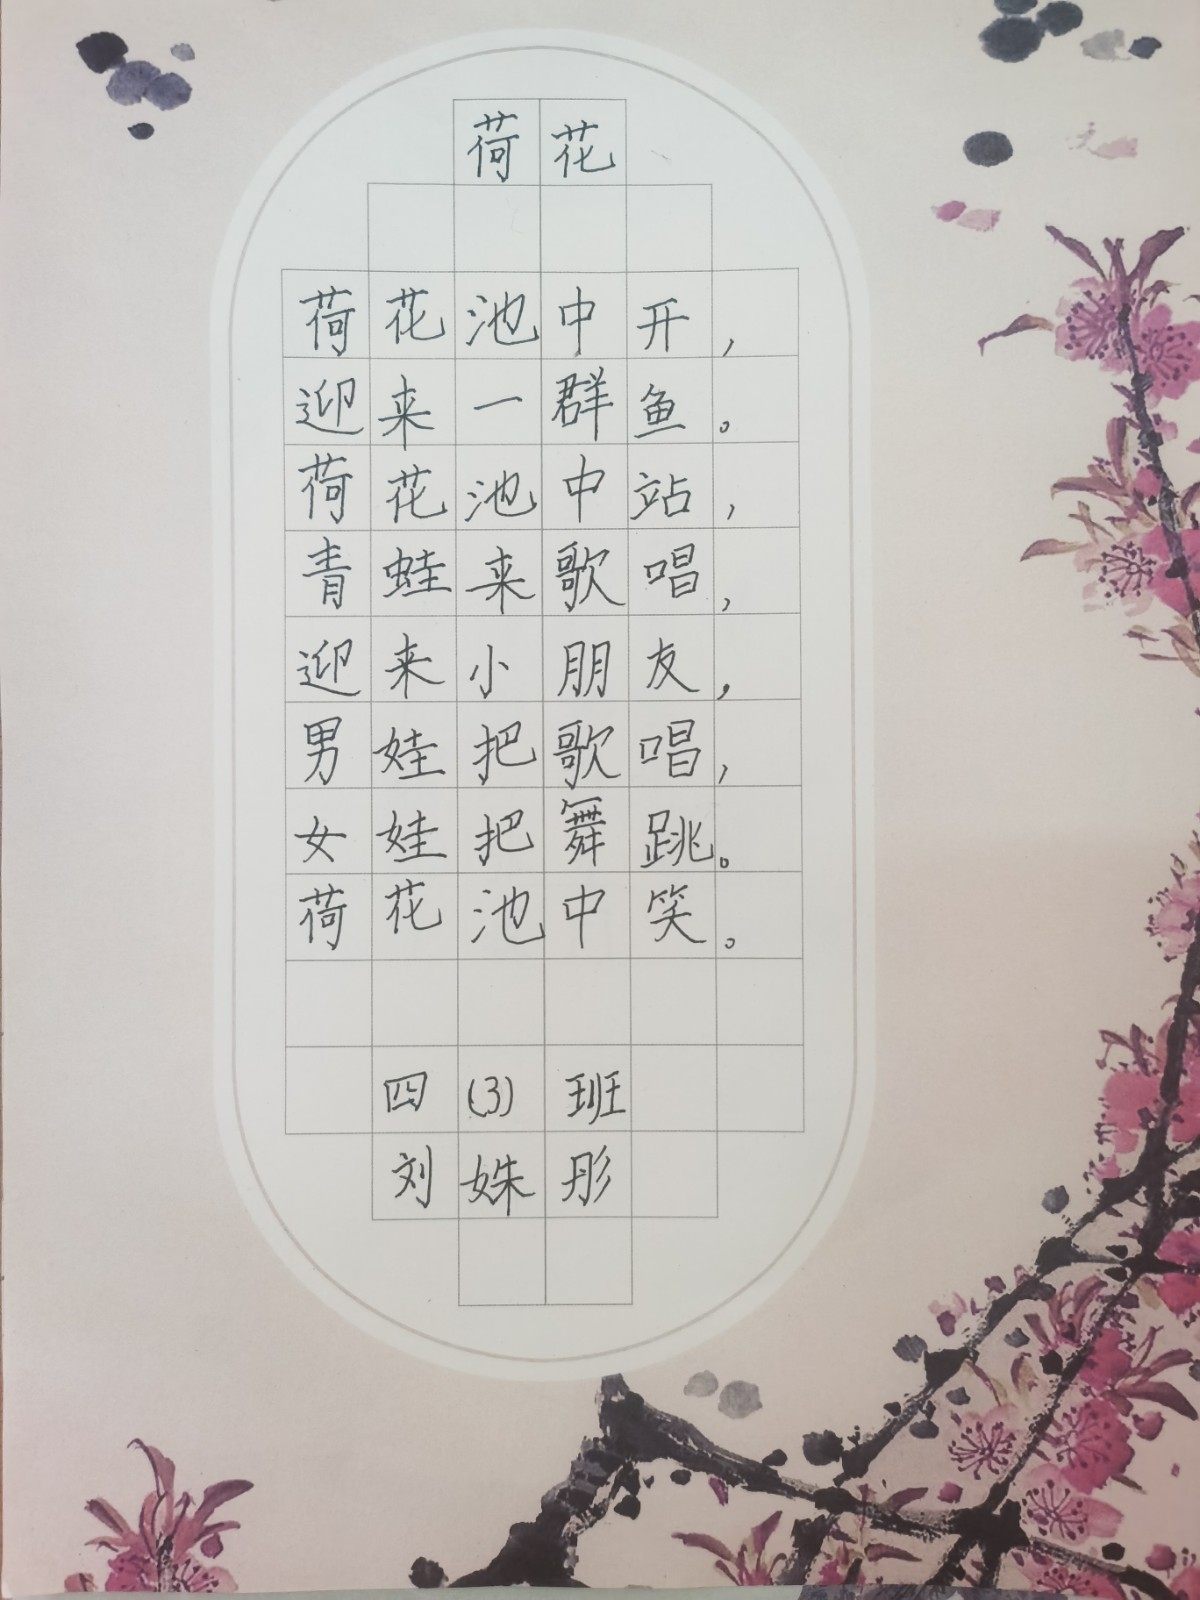 荷花
荷花池中开，
迎来一群鱼。
荷花池中站，
青蛙来歌唱，
迎来小朋友，
男娃把歌唱，
女娃把舞跳。
荷花池中笑。
四(3)班
刘姝彤